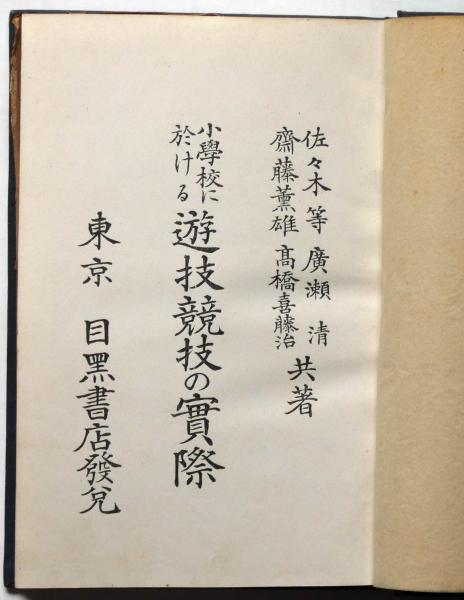 佐々木等 廣瀬清
齋藤薫雄 髙橋喜藤治
共著
小學校に
於ける
遊技競技の實際
東京 目黑書店發兌